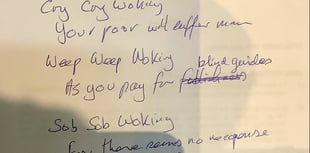 Cry Cry Woking
Your poor will suffer more
Weep Weep Woking blind guides
As you pay for
Sob Sob Woking
For there seems no recourse